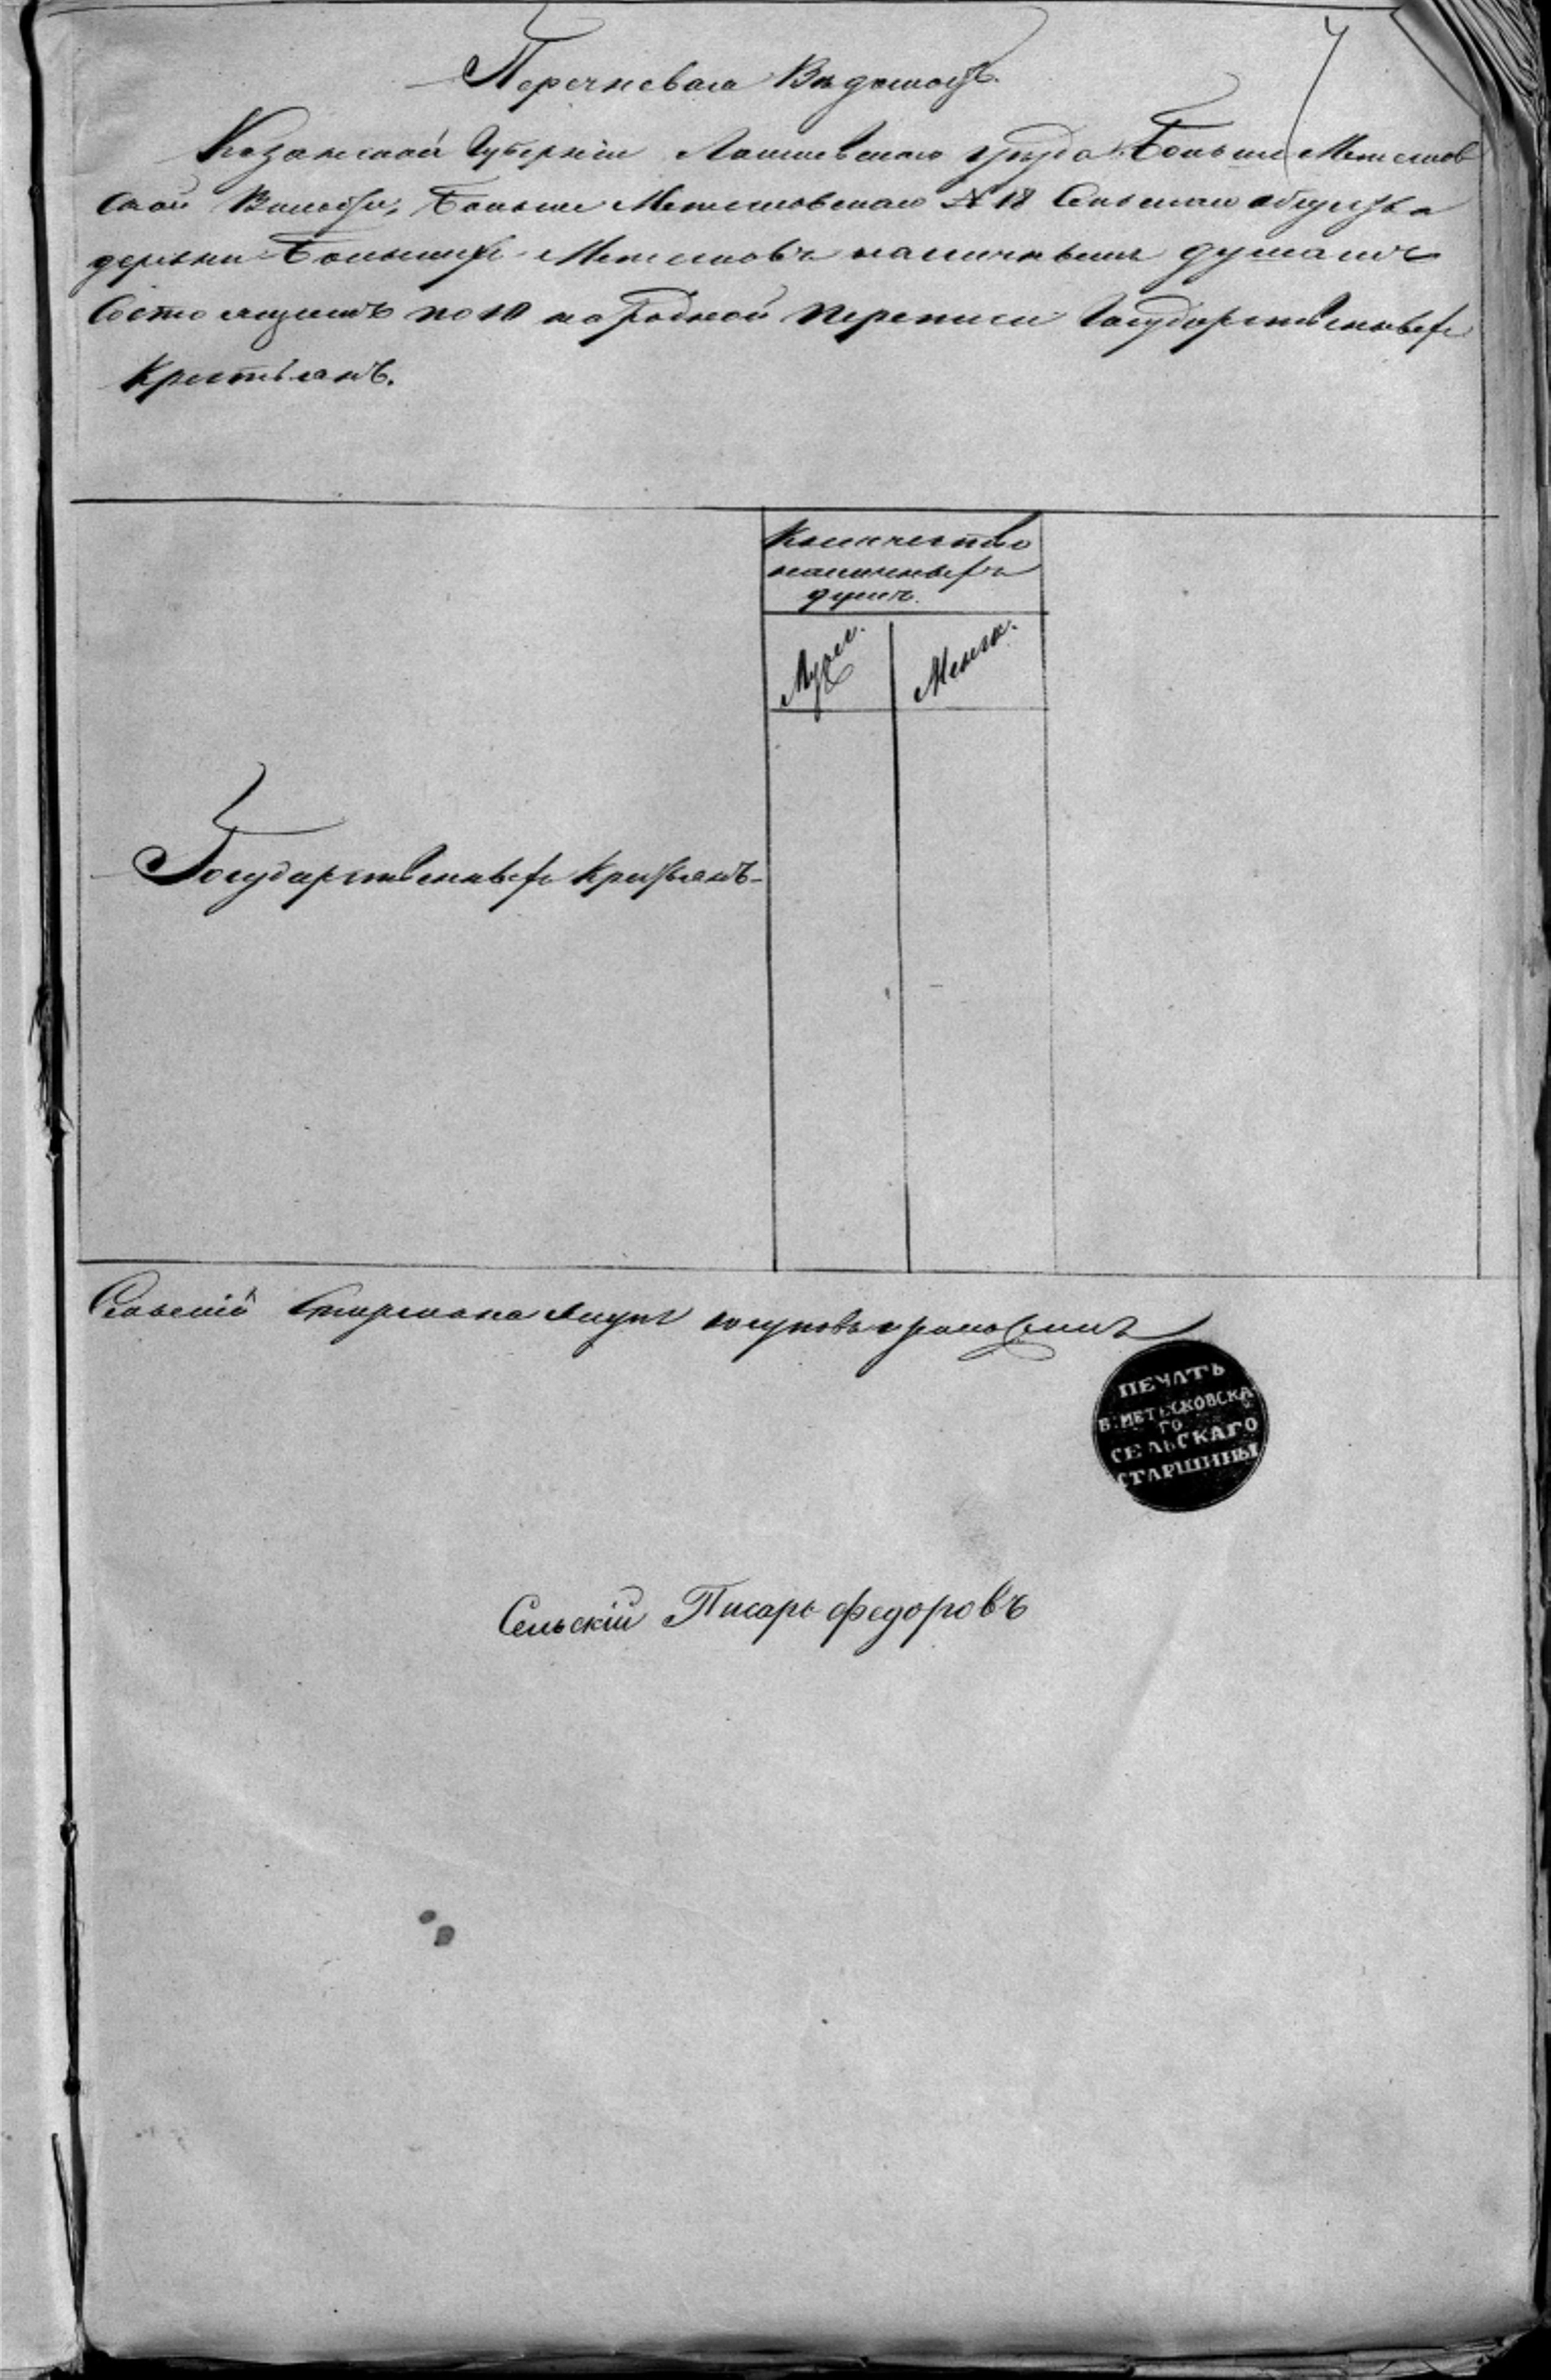 Перечневая Ведомость.
Казанской Губерніи Лаишевскаго уезда Больше Метесков
ской Волости, Больше Метесковскаго № 18 Сельскаго общества
деревни Большихъ Метесковъ наличнымъ душамъ
Состоящимъ по 10 народной переписи Государственныхъ
крестьянъ.
Количество
наличныхъ
душъ.
Муж.
Женск.
Государственныхъ крестьянъ
Сельскій Старшина
ПЕЧАТЬ
Б. МЕТЕСКОВСКА
ГО
СЕЛЬСКАГО
СТАРШИНЫ
Сельскій Писарь Федоровъ